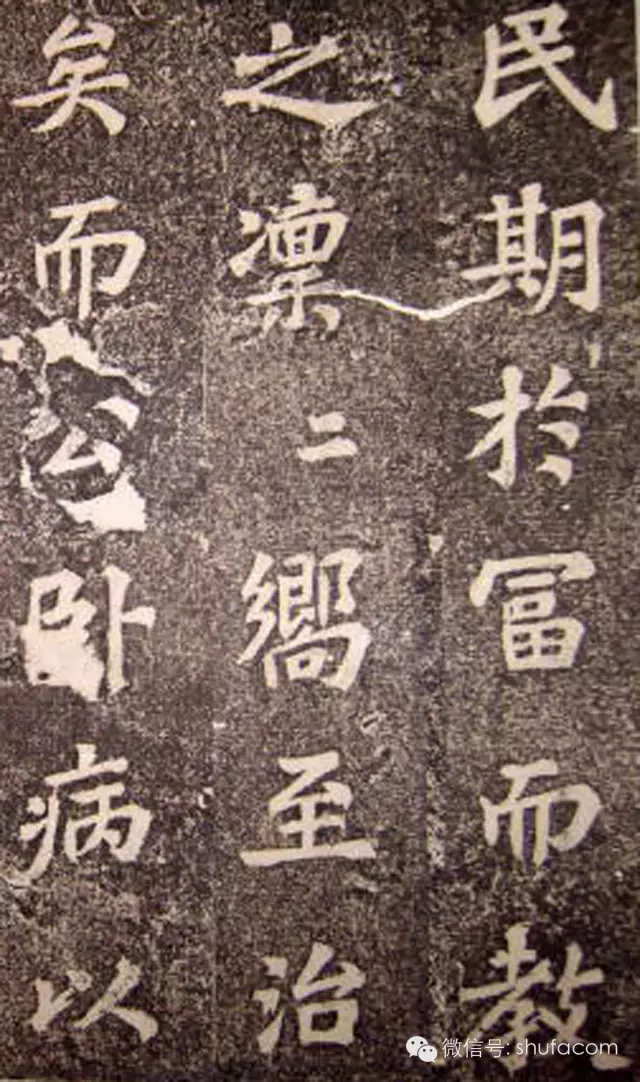 民期於冨而教
之凜二嚮至治
矣而公卧病以
微信号: shufacom